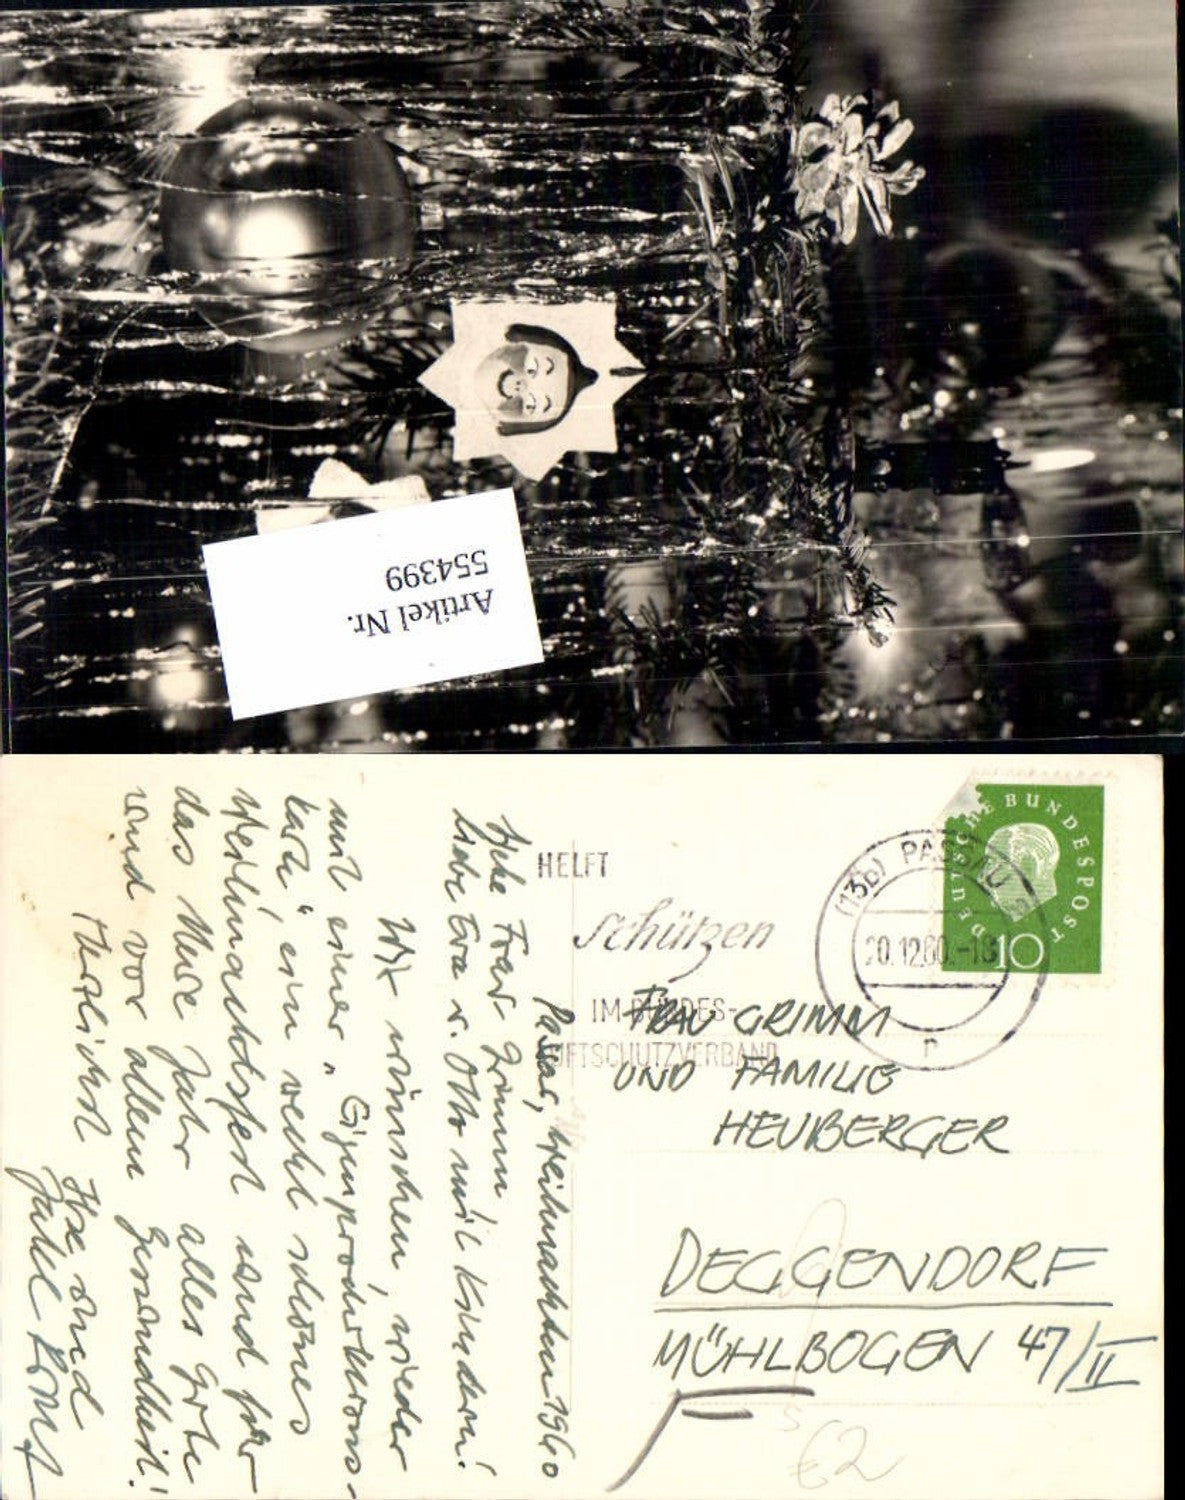 Artikel Nr.
554399
DEUTSCHE BUNDESPOST
10
(13b) PASSAU 2
20.12.60.-18
r
HELFT
Schützen
IM BUNDES-
LUFTSCHUTZVERBAND
FRAU GRIMM
UND FAMILIE
HEUBERGER
DEGGENDORF
MÜHLBOGEN 47/II
€2
Passau, Weihnachten 1960
Liebe Frau Grimm
liebe Eva u. Otto mit Kindern!
Wir wünschen, wieder
mit einer "Eigenproduktions-
karte" ein recht schönes
Weihnachtsfest und für
das Neue Jahr alles Gute
und vor allem Gesundheit!
Herzlichst Ilse und